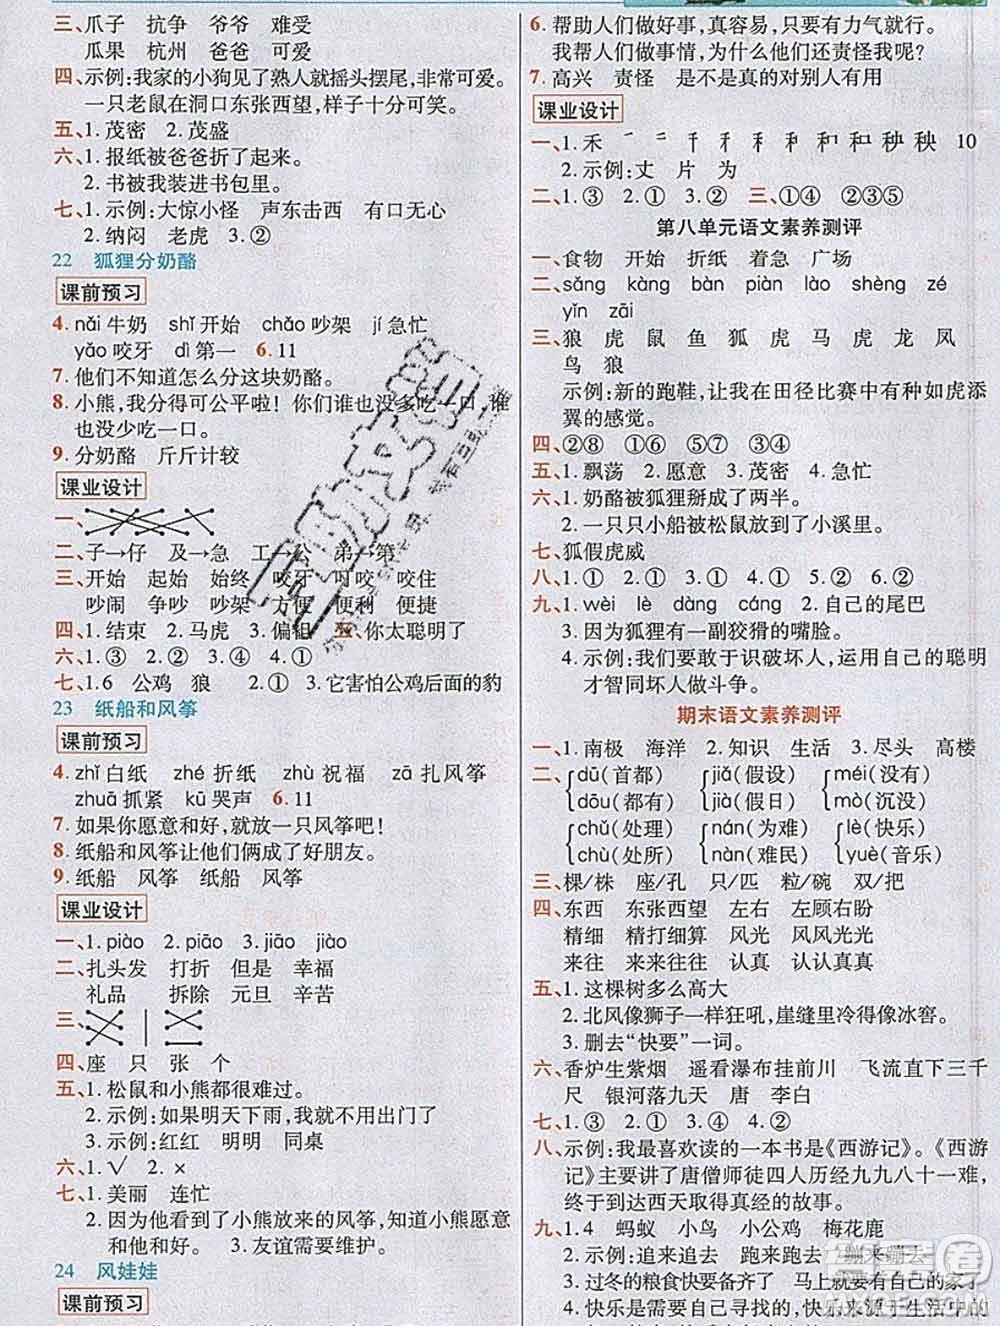 三、爪子 抗争 爷爷 难受
瓜果 杭州 爸爸 可爱
四、示例:我家的小狗见了熟人就摇头摆尾,非常可爱。
一只老鼠在洞口东张西望,样子十分可笑。
五、1.茂密 2.茂盛
六、1.报纸被爸爸折了起来。
2.书被我装进书包里。
七、1.示例:大惊小怪 声东击西 有口无心
2.纳闷 老虎 3.②
22 狐狸分奶酪
课前预习
4.nǎi牛奶 shǐ开始 chǎo吵架 jí急忙
yǎo咬牙 dì第一 6.11
7.他们不知道怎么分这块奶酪。
8.小熊,我分得可公平啦! 你们谁也没多吃一口,谁
也没少吃一口。
9.分奶酪 斤斤计较
课业设计
一、
二、子→仔 及→急 工→公 弟→第
三、开始 起始 始终 咬牙 叮咬 咬住
吵闹 争吵 吵架 方便 便利 便捷
四、1.结束 2.马虎 3.偏袒 五、你太聪明了
六、1.③ 2.② 3.④ 4.①
七、1.6 公鸡 狼 2.① 3.它害怕公鸡后面的豹
23 纸船和风筝
课前预习
4.zhǐ白纸 zhé折纸 zhù祝福 zā扎风筝
zhuā抓紧 kū哭声 6.11
7.如果你愿意和好,就放一只风筝吧!
8.纸船和风筝让他们俩成了好朋友。
9.纸船 风筝 纸船 风筝
课业设计
一、1.piào 2.piāo 3.jiāo jiào
二、扎头发 打折 但是 幸福
礼品 拆除 元旦 辛苦
三、
四、座 只 张 个
五、1.松鼠和小熊都很难过。
2.示例:如果明天下雨,我就不用出门了
3.示例:红红 明明 同桌
六、1.√ 2.×
七、1.美丽 连忙
2.因为他看到了小熊放来的风筝,知道小熊愿意
和他和好。 3.友谊需要维护。
24 风娃娃
课前预习
6.帮助人们做好事,真容易,只要有力气就行。
我帮人们做事情,为什么他们还责怪我呢?
7.高兴 责怪 是不是真的对别人有用
课业设计
一、1.禾 10
2.示例:丈 片 为
二、1.③ 2.① 3.② 三、①④ ②③ ⑤
第八单元语文素养测评
一、食物 开始 折纸 着急 广场
二、sǎng kàng bàn piàn lào shèng zé
yǐn zāi
三、狼 虎 鼠 鱼 狐 虎 马 虎 龙 凤
鸟 狼
示例:新的跑鞋,让我在田径比赛中有种如虎添
翼的感觉。
四、②⑧ ①⑥ ⑤⑦ ③④
五、1.飘荡 2.愿意 3.茂密 4.急忙
六、1.奶酪被狐狸掰成了两半。
2.一只只小船被松鼠放到了小溪里。
七、狐假虎威
八、1.① 2.① 3.② 4.① 5.② 6.②
九、1.wèi lè dàng cáng 2.自己的尾巴
3.因为狐狸有一副狡猾的嘴脸。
4.示例:我们要敢于识破坏人,运用自己的聪明
才智同坏人做斗争。
期末语文素养测评
一、1.南极 海洋 2.知识 生活 3.尽头 高楼
二、dū(首都) jiǎ(假设) méi(没有)
dōu(都有) jià(假日) mò(沉没)
chǔ(处理) nán(为难) lè(快乐)
chù(处所) nàn(难民) yuè(音乐)
三、棵/株 座/孔 只/匹 粒/碗 双/把
四、东西 东张西望 左右 左顾右盼
精细 精打细算 风光 风风光光
来往 来来往往 认真 认认真真
五、1.这棵树多么高大
2.北风像狮子一样狂吼,崖缝里冷得像冰窖。
3.删去“快要”一词。
六、香炉生紫烟 遥看瀑布挂前川 飞流直下三千
尺 银河落九天 唐 李白
七、1.③ 2.① 3.② 4.①
八、示例:我最喜欢读的一本书是《西游记》。《西游
记》主要讲了唐僧师徒四人历经九九八十一难,
终于到达西天取得真经的故事。
九、1.4 蚂蚁 小鸟 小公鸡 梅花鹿
2.示例:追来追去 跑来跑去 蹦来蹦去
3.过冬的粮食快要备齐了 马上就要有自己的家了
4.快乐是简单的,快乐来源于生活中的